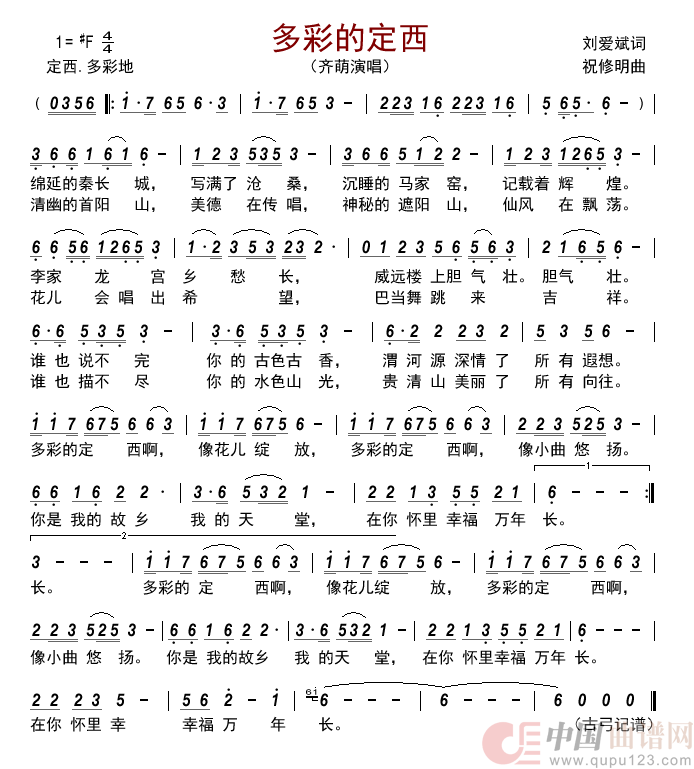 多彩的定西
1= #F 4/4
刘爱斌词
定西.多彩地
（齐萌演唱）
祝修明曲
( 0356 |: 1·7 65 6·3 | 1·7 65 3 - | 223 16 223 16 | 5 65· 6 - ) |
3 6·6 1 61 6 - | 1 2 3 535 3 - | 3 6 6 5 12 2 - | 1 2 3 3 1265 3 - |
绵延的秦长 城， 写满了 沧 桑， 沉睡的 马家 窑， 记载着 辉 煌。
清幽的首阳 山， 美德 在传 唱， 神秘的 遮阳 山， 仙风 在 飘 荡。
6 6 56 1265 3 | 1·2 3 53 23 - | 0 1 23 56 563 | 2161 65 5 - |
李家 龙 宫 乡 愁 长， 威远楼 上胆 气 壮。胆气 壮。
花儿 会 唱 出 希 望， 巴当舞 跳 来 吉 祥。
6·6 535 3 - | 3·6 535 3 - | 6·2 223 21 2 | 53 5 35 - |
谁 也 说不 完 你 的 古色古 香， 渭 河 源 深情 了 所 有 遐想。
谁 也 描不 尽 你 的 水色山 光， 贵 清 山 美丽 了 所 有 向往。
1 1 7 675 6 6 3 | 1 1 7 675 6 - | 1 1 7 675 6 6 3 | 2 2 3 525 3 - |
多彩的定 西啊， 像花儿 绽 放， 多彩的定 西啊， 像小曲 悠 扬。
1
6 6 1 6 2 2· | 3·6 532 1 - | 2 2 1 3 5 5 21 | 6 - - - :|
你是 我的 故 乡 我 的 天 堂， 在你 怀里 幸福 万年 长。
2
3 - - - | 1 1 7 675 6 6 3 | 1 1 7 675 6 - | 1 1 7 675 6 6 3 |
长。 多彩的 定 西啊， 像花儿绽 放， 多彩的定 西啊，
2 2 3 525 3 - | 6 6 1 6 2 2· | 3·6 532 1 - | 2 2 1 3 5 5 21 6 - |
像小曲 悠 扬。 你是 我的故乡 我 的天 堂， 在你 怀里幸福 万年 长。
2 2 1 3 5 - | 5 6 2 - 1 | 6 - - - | 6 - - - | 6 0 0 0 ‖
在你 怀里 幸 幸福 万 年 长。 （古弓记谱）
中国曲谱网
www.qupu123.com